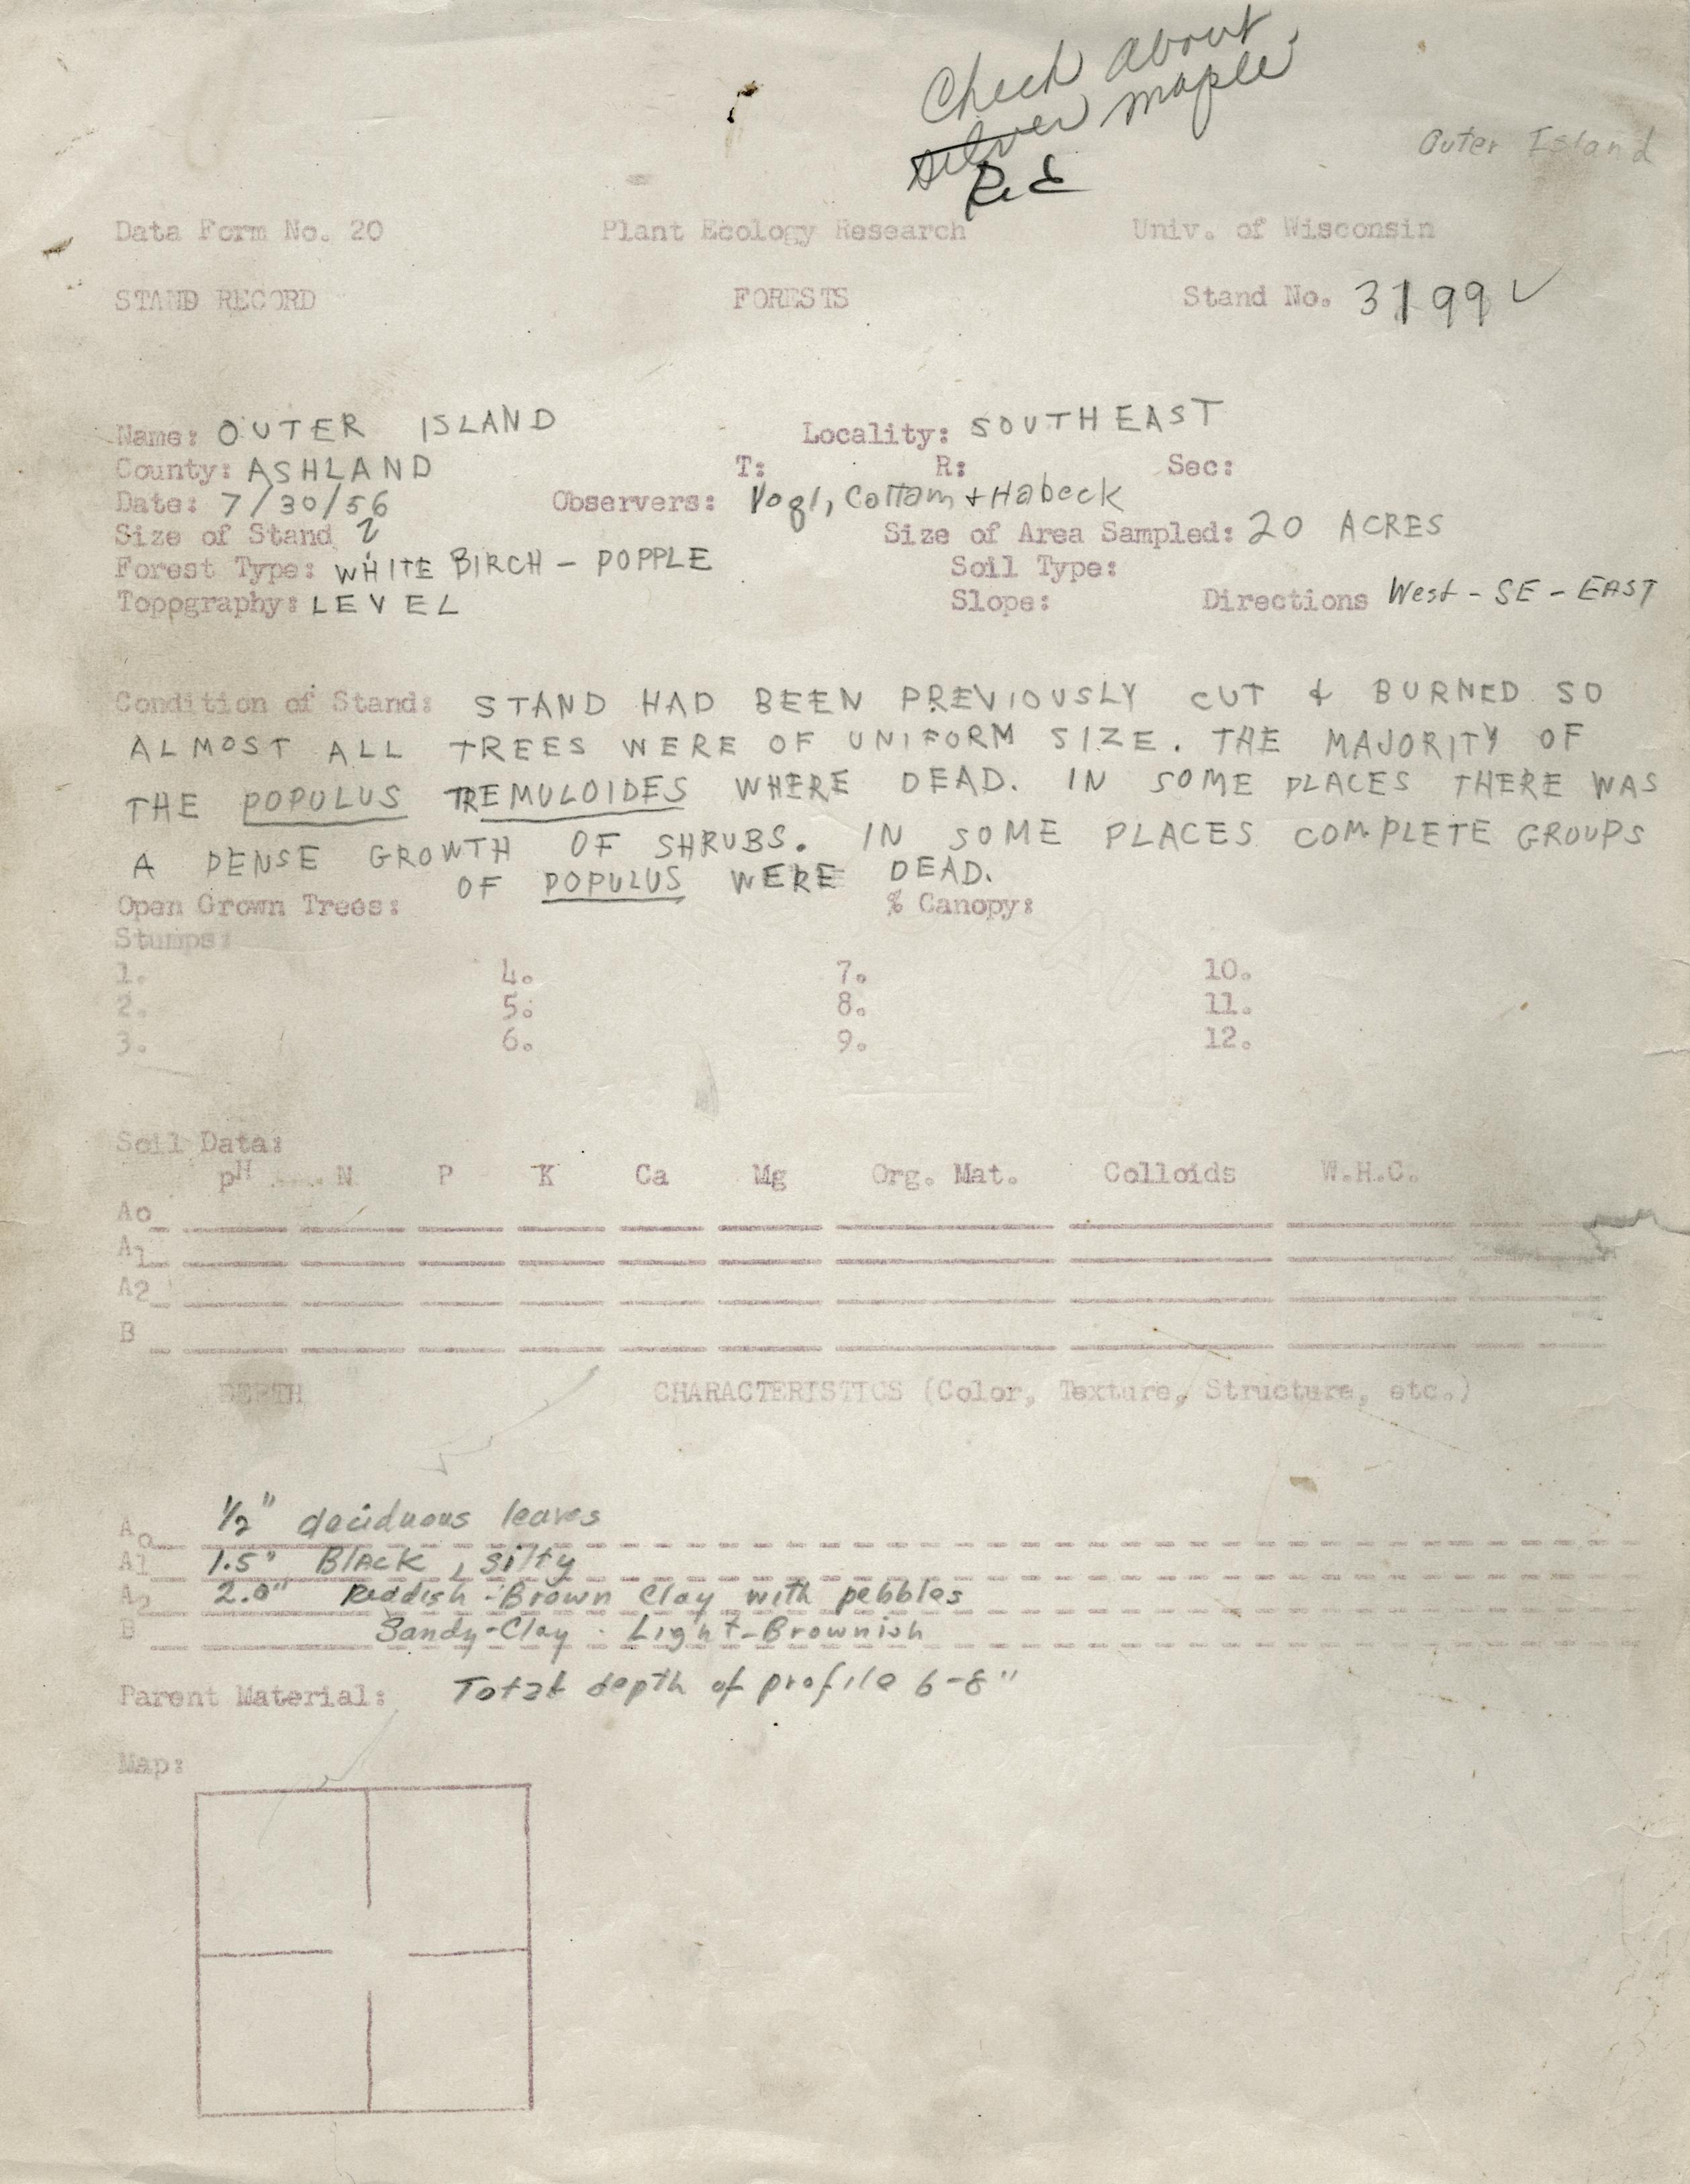 Check about
silver maple
Red
Outer Island
Data Form No. 20 Plant Ecology Research Univ. of Wisconsin
STAND RECORD FORESTS Stand No. 3199 ✓
Name: OUTER ISLAND Locality: SOUTHEAST
County: ASHLAND T: R: Sec:
Date: 7/30/56 Observers: Vogl, Cottam + Habeck
Size of Stand ? Size of Area Sampled: 20 ACRES
Forest Type: WHITE BIRCH - POPPLE Soil Type:
Toppgraphy: LEVEL Slope: Directions West - SE - EAST
Condition of Stand: STAND HAD BEEN PREVIOUSLY CUT & BURNED SO
ALMOST ALL TREES WERE OF UNIFORM SIZE. THE MAJORITY OF
THE POPULUS TREMULOIDES WHERE DEAD. IN SOME PLACES THERE WAS
A DENSE GROWTH OF SHRUBS. IN SOME PLACES COMPLETE GROUPS
OF POPULUS WERE DEAD.
Open Grown Trees: % Canopy:
Stumps:
1. 4. 7. 10.
2. 5. 8. 11.
3. 6. 9. 12.
Soil Data:
pH N P K Ca Mg Org. Mat. Colloids W.H.C.
Ao
A1
A2
B
DEPTH CHARACTERISTICS (Color, Texture, Structure, etc.)
Ao 1/2" deciduous leaves
A1 1.5" Black, silty
A2 2.0" Reddish-Brown Clay with pebbles
B Sandy-Clay - Light-Brownish
Parent Material: Total depth of profile 6-8"
Map: